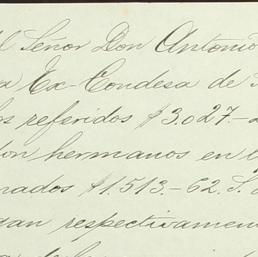 l Señor Don Antonio
a Ex-Condesa de
os referidos $3.027.-
on hermanos en
nados $1.513.-62.
gan respectivamen